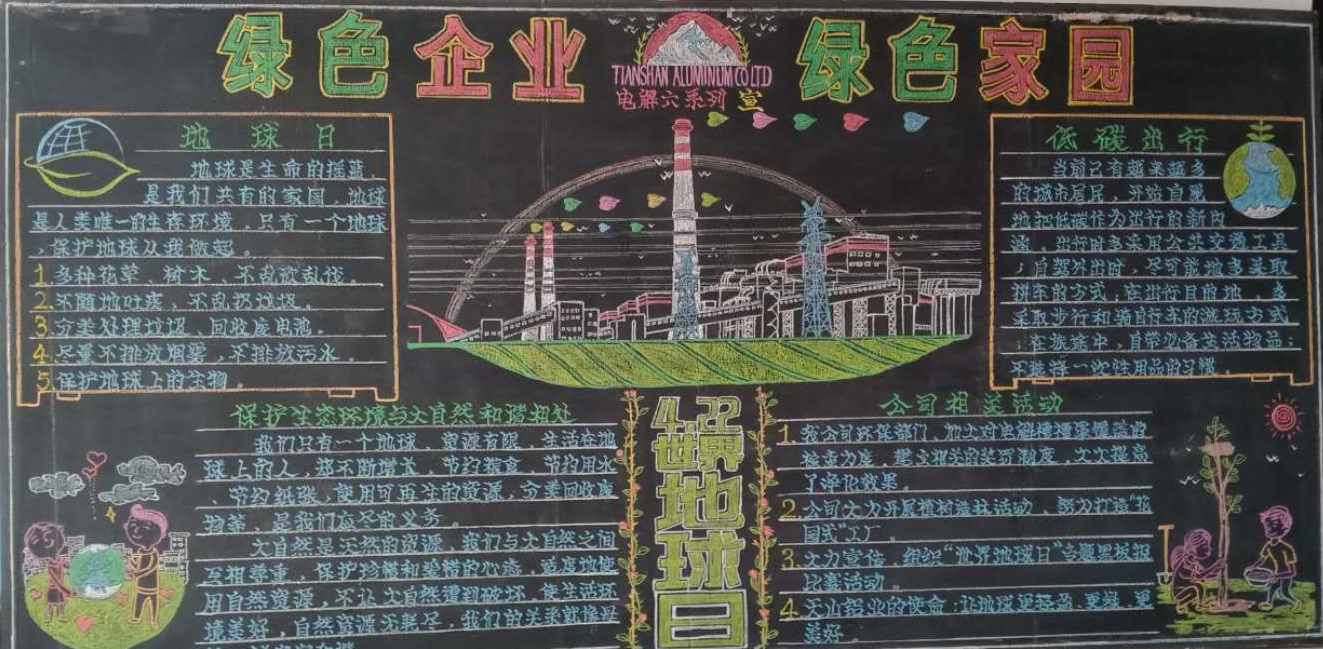 绿色企业
TIANSHAN ALUMINUM CO LTD
电解六系列 宣
绿色家园
地球日
地球是生命的摇蓝,
是我们共有的家园,地球
是人类唯一的生存环境,只有一个地球
,保护地球从我做起。
1.多种花草、树木、不乱砍乱伐。
2.不随地吐痰、不乱扔垃圾。
3.分类处理垃圾、回收废电池。
4.尽量不排放烟雾,不排放污水。
5.保护地球上的生物。
低碳出行
当前已有越来越多
的城市居民,开始自觉
地把低碳作为出行的新内
涵,出行时多采用公共交通工具
;自驾外出时,尽可能地多采取
拼车的方式;在出行目的地,多
采取步行和骑自行车的游玩方式
;在旅途中,自带必备生活物品;
不选择一次性用品的习惯。
保护生态环境与大自然和谐相处
我们只有一个地球,资源有限,生活在地
球上的人,将不断增长,节约粮食,节约用水
、节约纸张,使用可再生的资源,分类回收废
物等,是我们应尽的义务。
大自然是天然的资源,我们与大自然之间
互相尊重,保护珍惜和爱惜的心态,适度地使
用自然资源,不让大自然遭到破坏,使生活环
境美好,自然资源不耗尽,我们的关系就像是
4.22
世界
地
球
日
公司相关活动
1.我公司环保部门、加大对电解槽槽
检查力度,建立相关的奖罚制度,大大提高
了净化效果。
2.公司大力开展植树造林活动,努力打造"花
园式"工厂。
3.大力宣传,组织"世界地球日"专题黑板报
比赛活动。
4.天山铝业的使命:让地球更轻盈、更绿、更
美好。